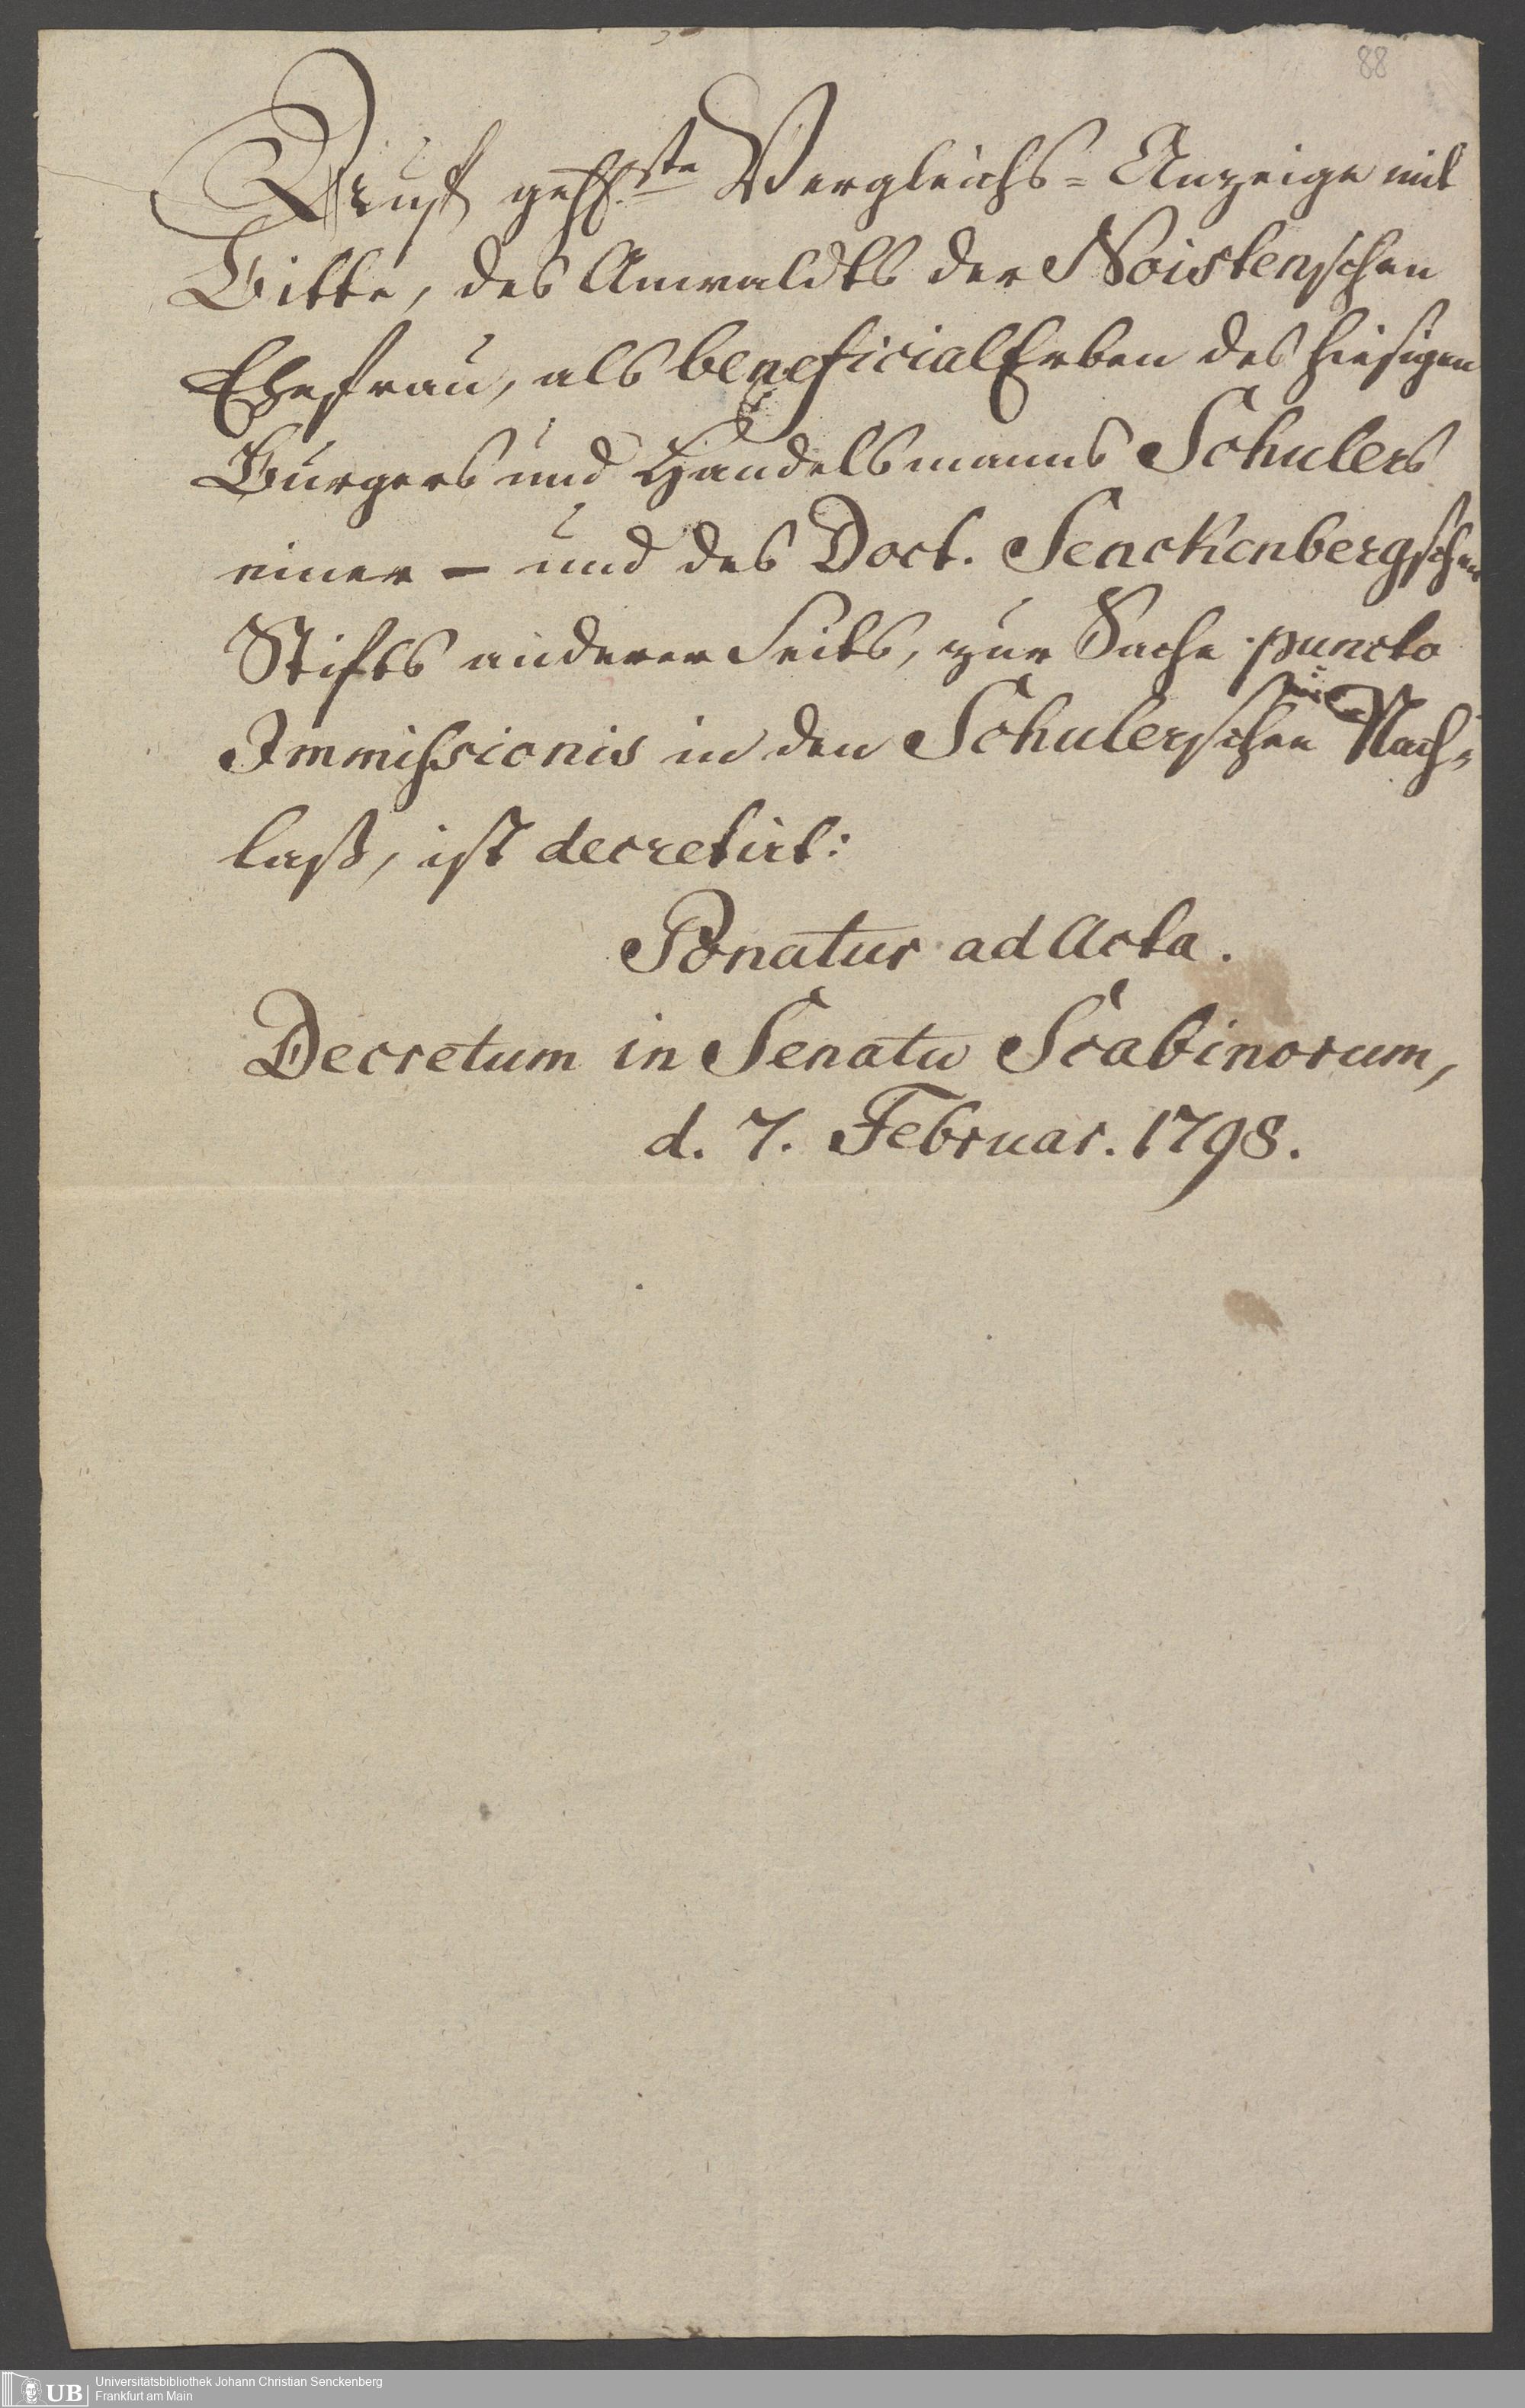 88
Auf gehste Vergleichs-Anzeige mit
Bitte, des Anwaldts der Noistenschen
Ehefrau, als beneficial Erben des hiesigen
Burgers und Handelsmanns Schulers
einer - und des Doct. Senckenbergschen
Stifts anderer Seits, zur Sache puncto
Immissionis in den Schulerschen Nach-
laß, ist decretirt:
Ponatur ad Acta.
Decretum in Senatu Scabinorum,
d. 7. Februar. 1798.
UB Universitätsbibliothek Johann Christian Senckenberg
Frankfurt am Main